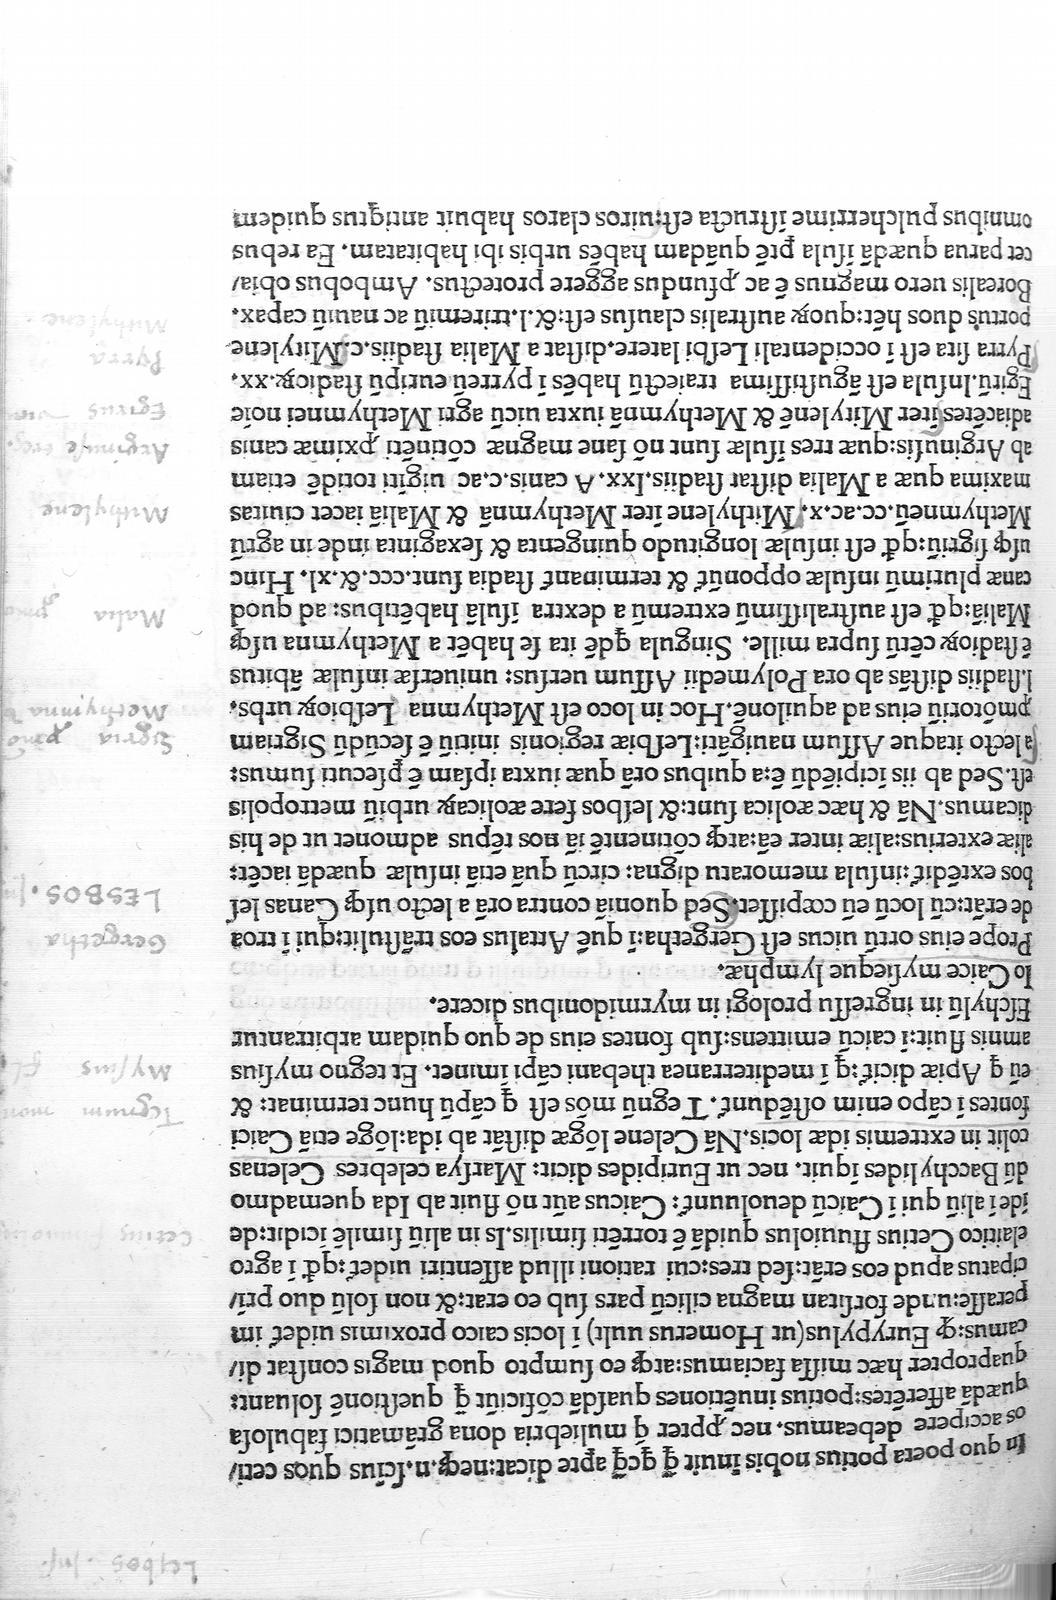 Lesbos . Ins.
In quo poeta potius nobis īnuit q̄ q̄cq̄ apte dicat:neqꝫ.n.scīus quos ceti/
os accipere debeamus. nec ꝓpter q̄ muliebria dona grāmatici fabulosa
quædā afferētes:potius inuētiones quasdā cōficiūt q̄ quęstionē soluant:
quapropter hæc missa faciamus:atqꝫ eo sumpto quod magis constat di/
camus:qꝫ Eurypylus(ut Homerus uult) ī locis caico proximis uidet̄ im
perasse:unde forsitan magna cilicū pars sub eo erat:& non solū duo prī/
cipatus apud eos erāt:sed tres:cui rationi illud assentiri uidet̄:qđ ī agro
elaitico Cetius fluuiolus quidā ē torrēti similis.Is in aliū similē īcidit:de
īde ī aliū qui ī Caicū deuoluunt̄: Caicus aūt nō fluit ab Ida quemadmo
dū Bacchylides īquit. nec ut Euripides dicit: Marsya celebres Celenas
colit in extremis idæ locis.Nā Celene lōgæ distāt ab ida:lōge etiā Caici
fontes ī cāpo enim ostēdunt̄. Tegnū mōs est q̄ cāpū hunc terminat: &
eū q̄ Apiæ dicit̄ :q̄ ī mediterranea thebani cāpi īminet. Et tegno mysius
amnis fluit:ī caicū emittens:sub fontes eius de quo quidam arbitrantur
Eschylū in ingressu prologi in myrmidonibus dicere.
Io Caice mysieque lymphæ.
Prope eius ortū uicus est Gergetha:ī quē Attalus eos trāstulit:qui ī troa
de erāt:cū locū eū cœpisset. Sed quoniā contra orā a lecto usqꝫ Canas les
bos extēdit̄:insula memoratu digna: circū quā etiā insulæ quædā iacēt:
aliæ exterius:aliæ inter eā:atqꝫ cōtinentē iā nos tēpus admonet ut de his
dicamus. Nā & hæc æolica sunt:& lesbos fere æolicaꝝ urbiū metropolis
est.Sed ab iis īcipiēdū ē:a quibus orā quæ iuxta ipsam ē ꝑsecuti sumus:
a lecto itaque Assum nauigāti:Lesbiæ regionis initiū ē secūdū Sigrium
ꝓmōtoriū eius ad aquilonē.Hoc in loco est Methymna Lesbioꝝ urbs.
l.stadiis distās ab ora Polymedii Assum uersus: uniuersæ insulæ ābitus
ē stadioꝝ cētū supra mille. Singula q̄dē ita se habēt a Methymna usqꝫ
Malia:qđ est australissimū extremū a dextra īsulā habētibus: ad quod
canæ plurimū insulæ opponūt̄ & terminant̄ stadia sunt.ccc.&.xl. Hinc
usqꝫ sigriū:qđ est insulæ longitudo quingenta & sexaginta inde in agrū
Methymneū.cc.ac.x. Mithylene īter Methymnā & Maliā iacet ciuitas
maxima quæ a Malia distat stadiis.lxx. A canis.c.ac uigīti totidē etiam
ab Arginusis:quæ tres īsulæ sunt nō sane magnæ cōtinēti ꝓximæ canis
adiacētes:īter Mitylenē & Methymnā iuxta uicū agri Methymnei noīe
Egirū.Insula est āgustissima traiectū habēs ī pyrreū euripū stadioꝝ.xx.
Pyrra sita est ī occidentali Lesbi latere.distat a Malia stadiis.c.Mitylene
portus duos hēt:quoꝝ australis clausus est:&.l.triremiū ac nauiū capax.
Borealis uero magnus ē ac ꝓfundus aggere protectus. Ambobus obia/
cet parua quædā īsula ꝑtē quādam habēs urbis ibi habitatam. Ea rebus
omnibus pulcherrime īstructa est:uiros claros habuit antiqtus quidem
Tegnum mons
Mysius fl.
Gergetha
LESBOS. Ins
Sigria
Methymna
Malia
Mithylene
Arginusæ
Egirus
Pyrra
Mithylene.